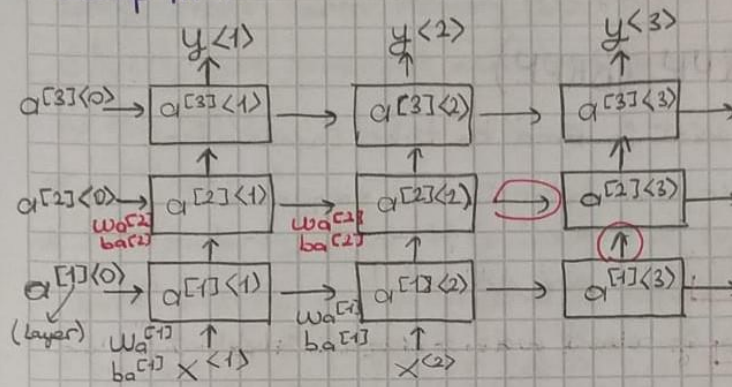 y<1> y<2> y<3>
a[3]<0> a[3]<1> a[3]<2> a[3]<3>
a[2]<0> a[2]<1> a[2]<2> a[2]<3>
wa[2] wa[2]
ba[2] ba[2]
a[1]<0> a[1]<1> a[1]<2> a[1]<3>
(Layer) wa[1] wa[1]
ba[1] ba[1]
x<1> x<2>